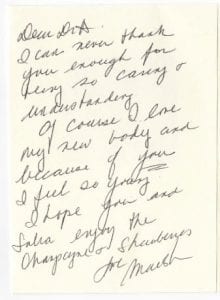 Dear Dr. A.
I can never thank
you enough for
being so caring &
understanding
Of course I love
my new body and
because of you
I feel so young
I hope you and
enjoy the
Champagne & Strawberries